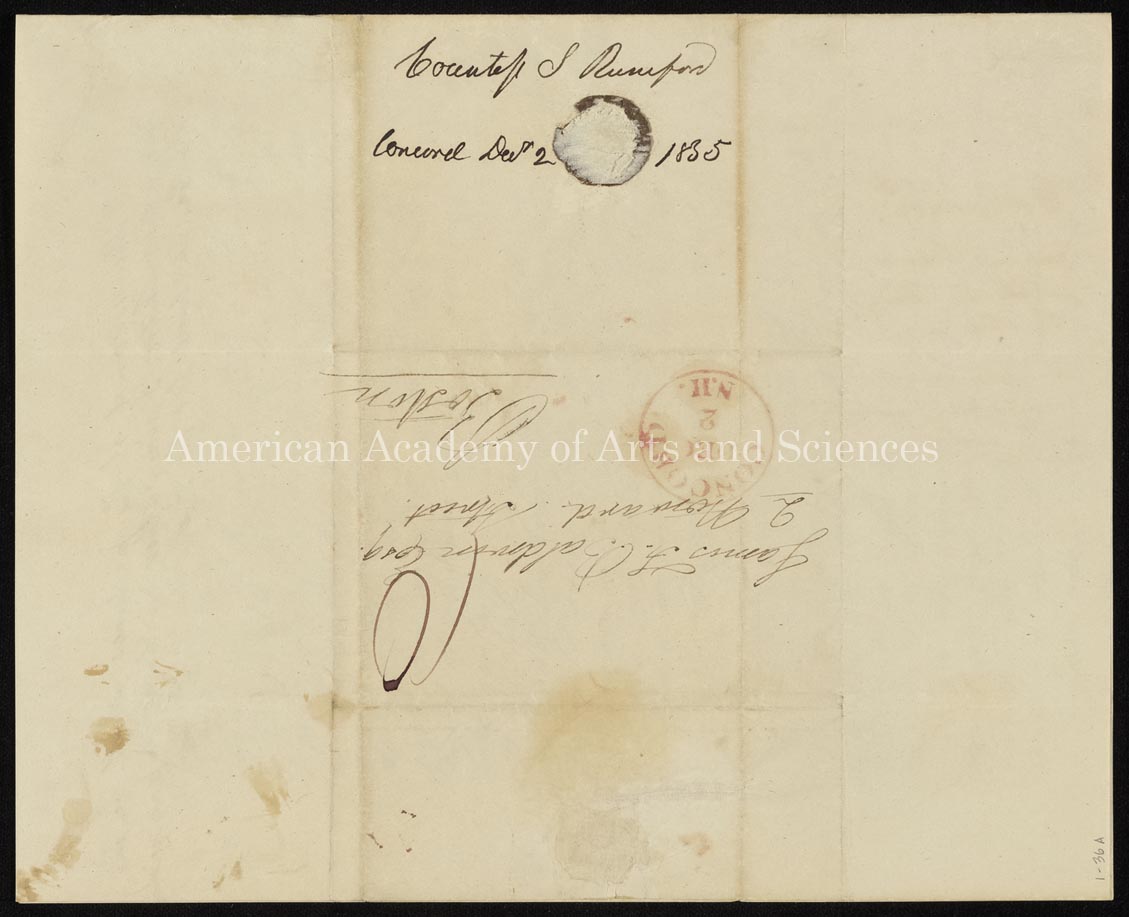 Countess S Rumford
Concord Decr 2 1835
James F. Baldwin Esq.
2 Howard Street
Boston
CONCORD
DEC
2
N.H.
American Academy of Arts and Sciences
1-36A